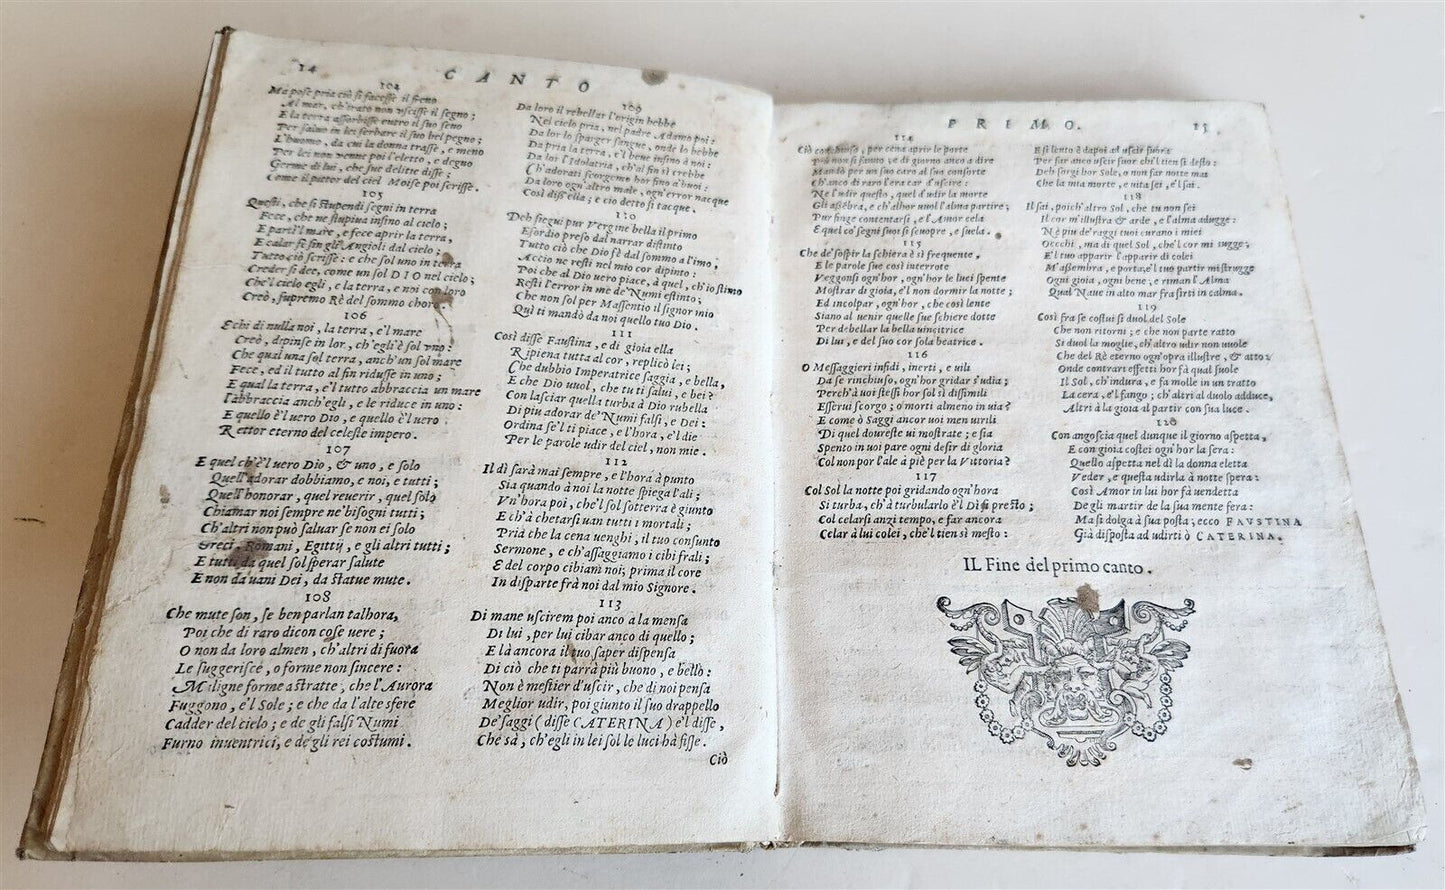 14 CANTO
104
Ma pose pria ciò si facesse il freno
Al mar, ch'irato non uscisse il segno;
E la terra assorbisse entro il suo seno
Per saluo in lei serbare il suo bel pegno;
L'huomo, da cui la donna trasse, e meno
Per lei non venne poi l'eletto, e degno
Germe di lui, che sue delitie disse;
Come il pittor del ciel Moise poi scrisse.
105
Questi, che sì stupendi segni in terra
Fece, che ne stupiua insino al cielo;
E partì'l mare, e fece aprir la terra,
E calar fè fin gli Angioli dal cielo;
Tutto ciò scrisse: e che sol uno in terra
Creder si dee, come un sol DIO nel cielo;
Che'l cielo egli, e la terra, e noi con loro
Creò, supremo Rè del sommo choro.
106
E chi di nulla noi, la terra, e'l mare
Creò, dipinse in lor, ch'egli è sol vno:
Che qual una sol terra, anch'un sol mare
Fece, ed il tutto al fin ridusse in uno;
E qual la terra, e'l tutto abbraccia un mare
L'abbraccia anch'egli, e le riduce in uno:
E quello è'l uero Dio, e quello è'l uero
Rettor eterno del celeste impero.
107
E quel ch'è'l uero Dio, & uno, e solo
Quell'adorar dobbiamo, e noi, e tutti;
Quell'honorar, quel reuerir, quel solo
Chiamar noi sempre ne' bisogni tutti;
Ch'altri non può saluar se non ei solo
Greci, Romani, Egittij, e gli altri tutti;
E tutti da quel sol sperar salute
E non da uani Dei, da statue mute.
108
Che mute son, se ben parlan talhora,
Poi che di raro dicon cose uere;
O non da loro almen, ch'altri di fuora
Le suggerisce, o forme non sincere:
Miligne forme astratte, che l'Aurora
Fuggono, e'l Sole; e che da l'alte sfere
Cadder del cielo; e de gli falsi Numi
Furno inuentrici, e de gli rei costumi.
109
Da loro il rebellar l'origin hebbe
Nel cielo pria, nel padre Adamo poi:
Da lor lo sparger sangue, onde lo hebbe
Da pria la terra, e'l bene insino à noi:
Da lor l'Idolatria, ch'al fin si crebbe
Ch'adorati scorgeme hor fino a buoi:
Da loro ogn'altro male, ogn'error nacque
Così diss'ella; e ciò detto si tacque.
110
Deh siegui pur Vergine bella il primo
Esordio preso dal narrar distinto
Tutto ciò che Dio fè dal sommo a l'imo,
Accio ne resti nel mio cor dipinto:
Poi che al Dio uero piace, à quel, ch'io stimo
Resti l'error in me de' Numi estinto;
Che non sol per Massentio il signor mio
Quì ti mandò da noi quello tuo Dio.
111
Così disse Faustina, e di gioia ella
Ripiena tutta al cor, replicò lei;
Che dubbio Imperatrice saggia, e bella,
E che Dio uuol, che tu ti salui, e bei?
Con lasciar quella turba à Dio rubella
Di piu adorar de' Numi falsi, e Dei:
Ordina se'l ti piace, e l'hora, e'l die
Per le parole udir del ciel, non mie.
112
Il dì sarà mai sempre, e l'hora à punto
Sia quando à noi la notte spiega l'ali;
Vn'hora poi, che'l sol sotterra è giunto
E ch'à chetarsi uan tutti i mortali;
Pria che la cena uenghi, il tuo consunto
Sermone, e ch'assaggiamo i cibi frali;
E del corpo cibiam noi; prima il core
In disparte frà noi dal mio Signore.
113
Di mane uscirem poi anco à la mensa
Di lui, per lui cibar anco di quello;
E là ancora il tuo saper dispensa
Di ciò che ti parrà più buono, e bello:
Non è mestier d'uscir, che di noi pensa
Meglior udir, poi giunto il suo drappello
De' saggi (disse CATERINA) e'l disse,
Che sà, ch'egli in lei sol le luci hà fisse.
Ciò
PRIMO. 15
114
Ciò conchiuso, per cena aprir le porte
Più non si fanno; e di giorno anco a dire
Mandò per un suo caro al suo consorte
Ch'anco di raro l'era car d'uscire:
Ne l'udir questo, quel d'udir la morte
Gli assebra, e ch'allhor uuol l'alma partire;
Pur finge contentarsi, e l'Amor cela
E quel co' segni suoi si scuopre, e suela.
115
Che de' sospir la schiera è sì frequente,
E le parole sue così interrote
Veggonsi ogn'hor, ogn'hor le luci spente
Mostrar di gioia, e'l non dormir la notte;
Ed incolpar, ogn'hor, che così lente
Siano al uenir quelle sue schiere dotte
Per debellar la bella uincitrice
Di lui, e del suo cor sola beatrice.
116
O Messaggieri infidi, inerti, e uili
Da se rinchiuso, ogn'hor gridar s'udia;
Perch'à uoi stessi hor sol sì dissimili
Esserui scorgo; o morti almeno in uia?
E come ò Saggi ancor uoi men uirili
Di quel doureste ui mostrate; e sia
Spento in uoi pare ogni desir di gloria
Col non por l'ale à piè per la Vittoria?
117
Col Sol la notte poi gridando ogn'hora
Si turba, ch'à turbularlo è'l Dì sì presto;
Col celarsi anzi tempo, e far ancora
Celar à lui colei, che'l tien sì mesto:
E sì lento è da poi ad uscir fuora
Per far anco uscir fuor chi'l tien sì desto:
Deh sorgi hor Sole, o non far notte mai
Che la mia morte, e uita sei, e'l sai.
118
Il sai, poich'altro Sol, che tu non sei
Il cor m'illustra & arde, e l'alma adugge:
Nè piu de' raggi tuoi curano i miei
Occhi, ma di quel Sol, che'l cor mi sugge;
E'l tuo apparir l'apparir di colei
M'assembra, e porta, e'l tuo partir mi strugge
Ogni gioia, ogni bene; e riman l'Alma
Qual Naue in alto mar fra sirti in calma.
119
Così fra se costui si duol del Sole
Che non ritorni; e che non parte ratto
Si duol la moglie, ch'altro udir non uuole
Che del Rè eterno ogn'opra illustre, & atto:
Onde contrari effetti hor fà qual suole
Il Sol, ch'indura, e fa molle in un tratto
La cera, e'l fango; ch'altri al duolo adduce,
Altri à la gioia al partir con sua luce.
120
Con angoscia quel dunque il giorno aspetta,
E con gioia costei ogn'hor la sera:
Quello aspetta nel dì la donna eletta
Veder, e questa udirla à notte spera:
Così Amor in lui hor fà uendetta
De gli martir de la sua mente fera:
Ma si dolga à sua posta; ecco FAVSTINA
Già disposta ad udirti ò CATERINA.
IL Fine del primo canto.